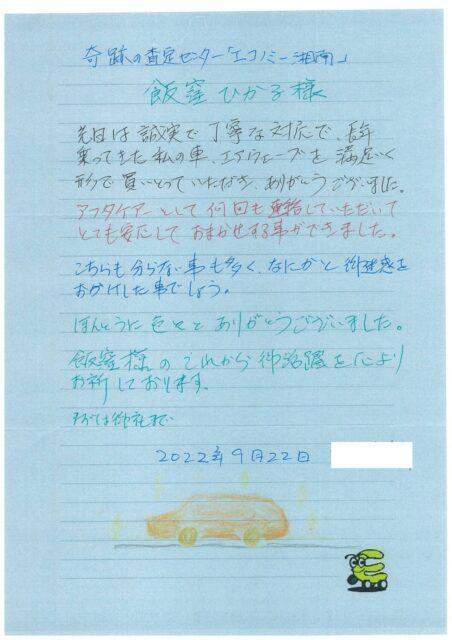 奇跡の査定センター「エコノミー湘南」
飯窪ひか子様
先日は誠実で丁寧な対応で、長年
乗ってきた私の車、エアウェーブを満足いく
形で買いとっていただき、ありがとうございました。
アフタケアーとして何回も連絡していただいて
とても安心しておまかせする事ができました。
こちらも分らない事も多く、なにかと御迷惑を
おかけした事でしょう。
ほんとうに色々とありがとうございました。
飯窪様のこれから御活躍を心より
お祈しております。
まずは御礼まで
2022年9月22日